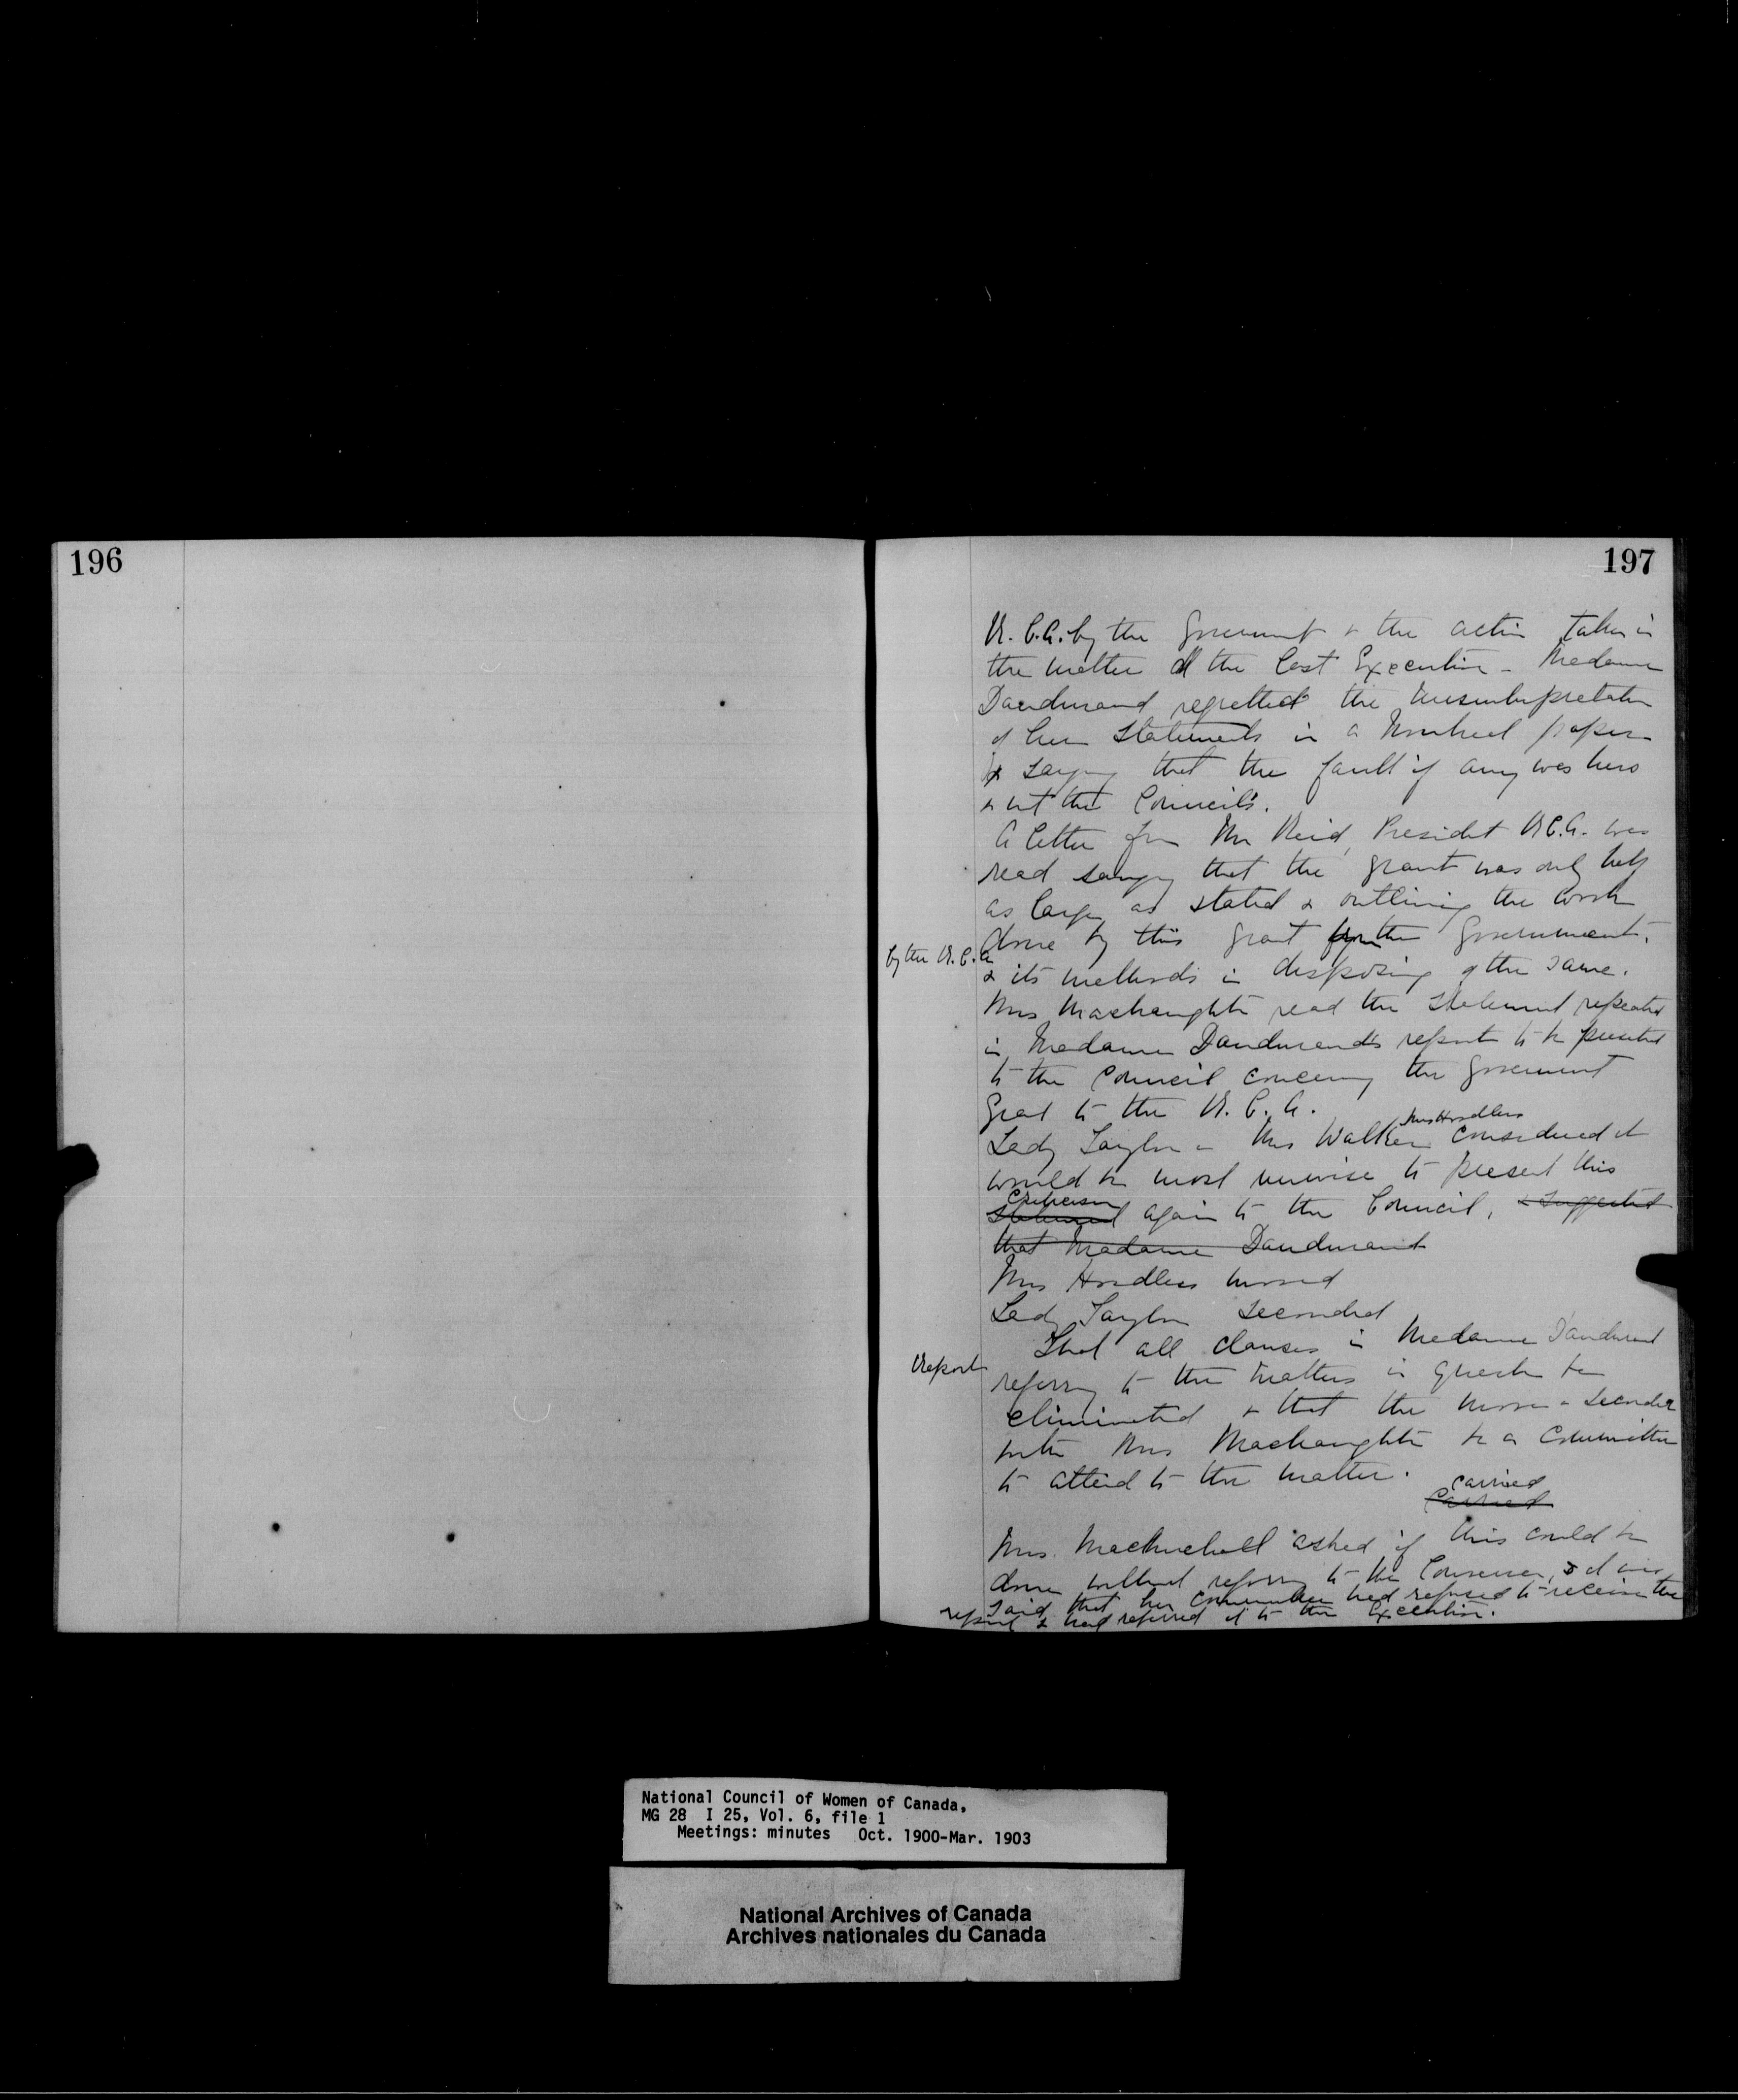 196
197
R.C.A. by the Government & the action taken in
the matter at the last Executive - Madame
Dandurand regretted the misinterpretation
of her statements in a Montreal paper
& saying that the fault if any was hers
& not the Council's.
A letter from Mr Reid, President R.C.A. was
read saying that the grant was only half
as large as stated & outlining the work
done by this grant from the Government.
by the R.C.A
& its methods in disposing of the same.
Mrs Macnaughton read the statement repeated
in Madame Dandurand's report to be presented
to the Council concerning the Government
Grant to the R.C.A.
Mrs Hoodless
Lady Taylor & Mrs Walker considered it
would be most unwise to present this
criticism
statement again to the Council, & suggested
that Madame Dandurand
Mrs Hoodless moved
Lady Taylor seconded
That all clauses in Madame Dandurand
report
referring to the matters in question be
eliminated & that the mover & seconder
with Mrs Macnaughton be a Committee
to attend to the matter.
carried
carried
Mrs. asked if this could be
done without referring to the Convener, & it was
said that her Committee had refused to receive the
report & had referred it to the Executive.
National Council of Women of Canada,
MG 28 I 25, Vol. 6, file 1
Meetings: minutes Oct. 1900-Mar. 1903
National Archives of Canada
Archives nationales du Canada